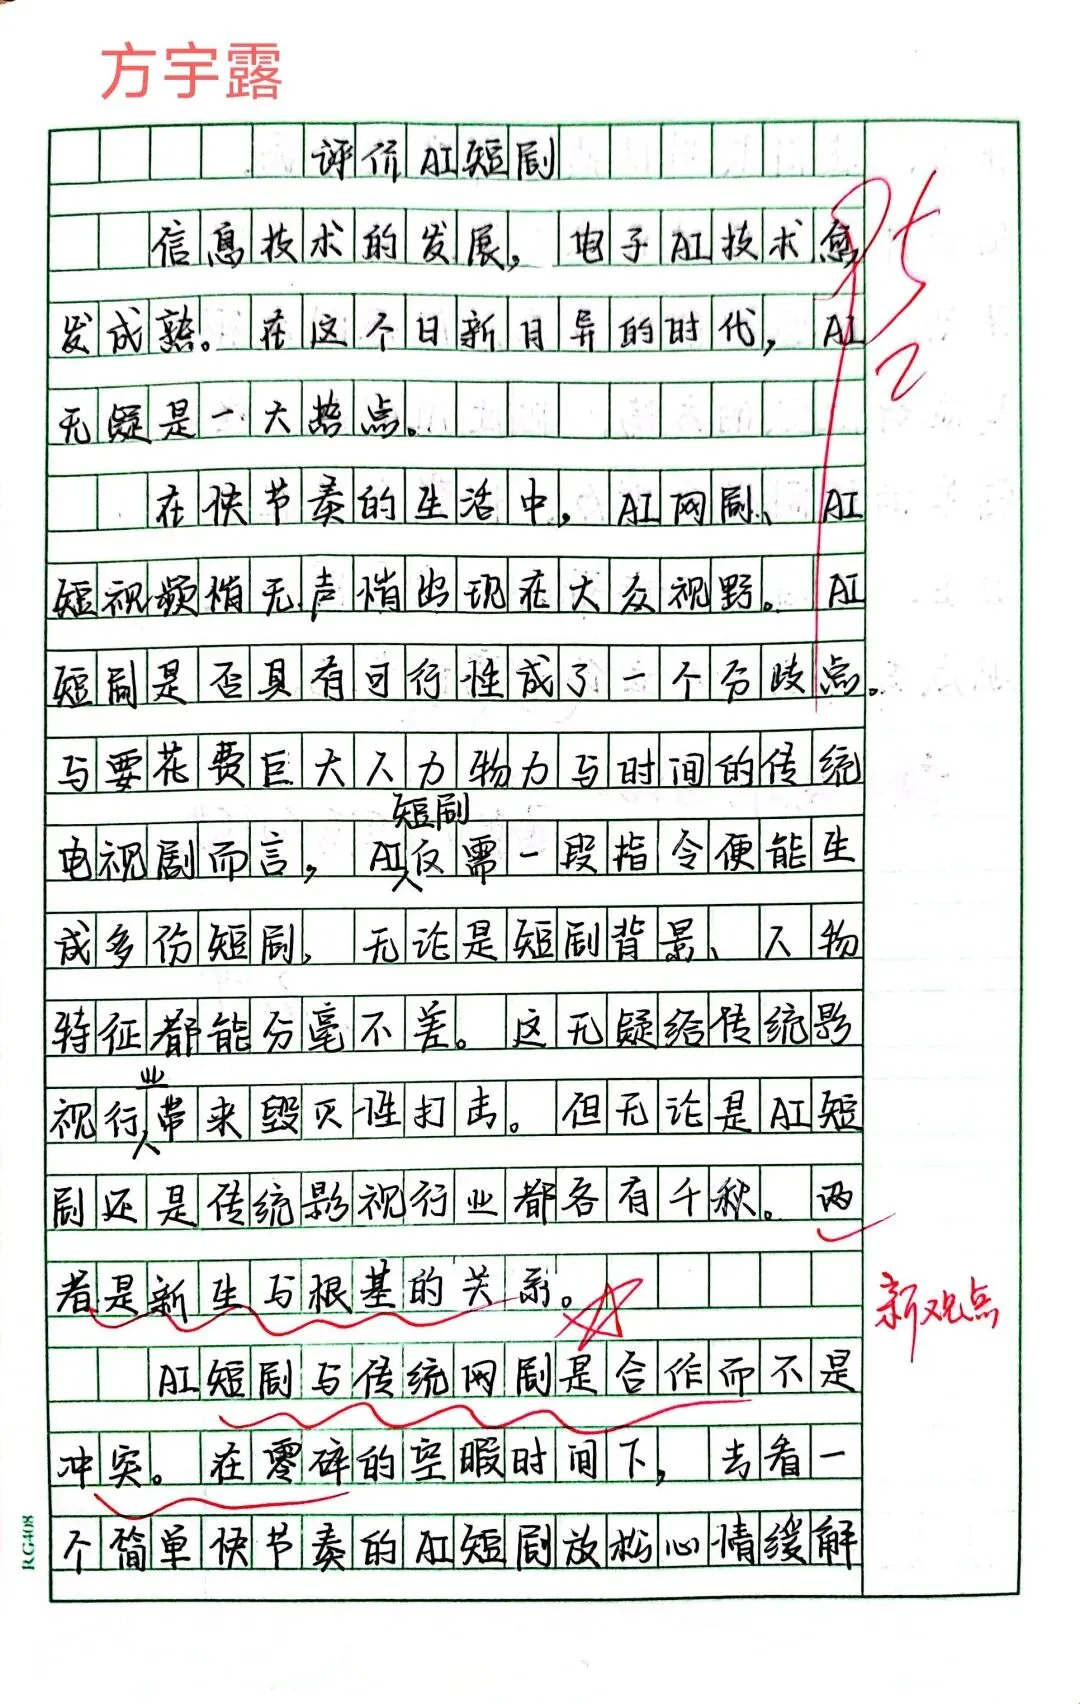 方宇露
评价AI短剧
信息技术的发展，电子AI技术愈
发成熟。在这个日新月异的时代，AI
无疑是一大热点。
在快节奏的生活中，AI网剧、AI
短视频悄无声悄出现在大众视野。AI
短剧是否具有可行性成了一个分歧点。
与要花费巨大人力物力与时间的传统
短剧
电视剧而言，AI仅需一段指令便能生
成多份短剧，无论是短剧背景、人物
特征都能分毫不差。这无疑给传统影
业
视行带来毁灭性打击。但无论是AI短
剧还是传统影视行业都各有千秋。两
者是新生与根基的关系。
新观点
AI短剧与传统网剧是合作而不是
冲突。在零碎的空暇时间下，去看一
个简单快节奏的AI短剧放松心情缓解
RG408